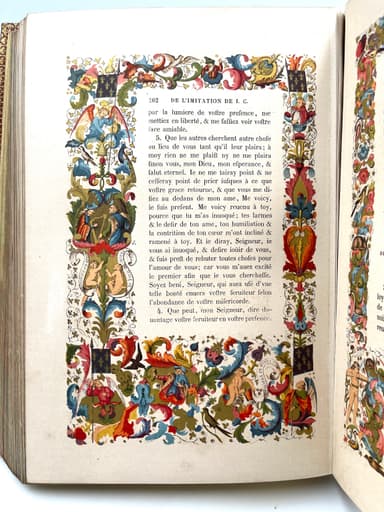 102 DE L'IMITATION DE I. C.
par la lumiere de voſtre preſence, me
mettiez en liberté, & me faſſiez voir voſtre
face amiable.
3. Que les autres cherchent autre choſe
au lieu de vous tant qu'il leur plaira; à
moy rien ne me plaiſt ny ne me plaira
ſinon vous, mon Dieu, mon eſperance, &
ſalut eternel. Ie ne me tairay point & ne
ceſſeray point de prier iuſques à ce que
voſtre grace retourne, & que vous me di-
ſiez au dedans de mon ame, Me voicy,
ie ſuis preſent. Me voicy reuenu à toy,
pource que tu m'as inuoqué; tes larmes
& le deſir de ton ame, ton humiliation &
la contrition de ton cœur m'ont incliné &
ramené à toy. Et ie diray, Seigneur, ie
vous ay inuoqué, & deſire ioüir de vous,
& ſuis preſt de rebuter toutes choſes pour
l'amour de vous; car vous m'auez excité
le premier afin que ie vous cherchaſſe.
Soyez beni, Seigneur, qui auez vſé d'vne
telle bonté enuers voſtre ſeruiteur ſelon
l'abondance de voſtre miſericorde.
4. Que peut, mon Seigneur, dire da-
uantage voſtre ſeruiteur en voſtre preſence,